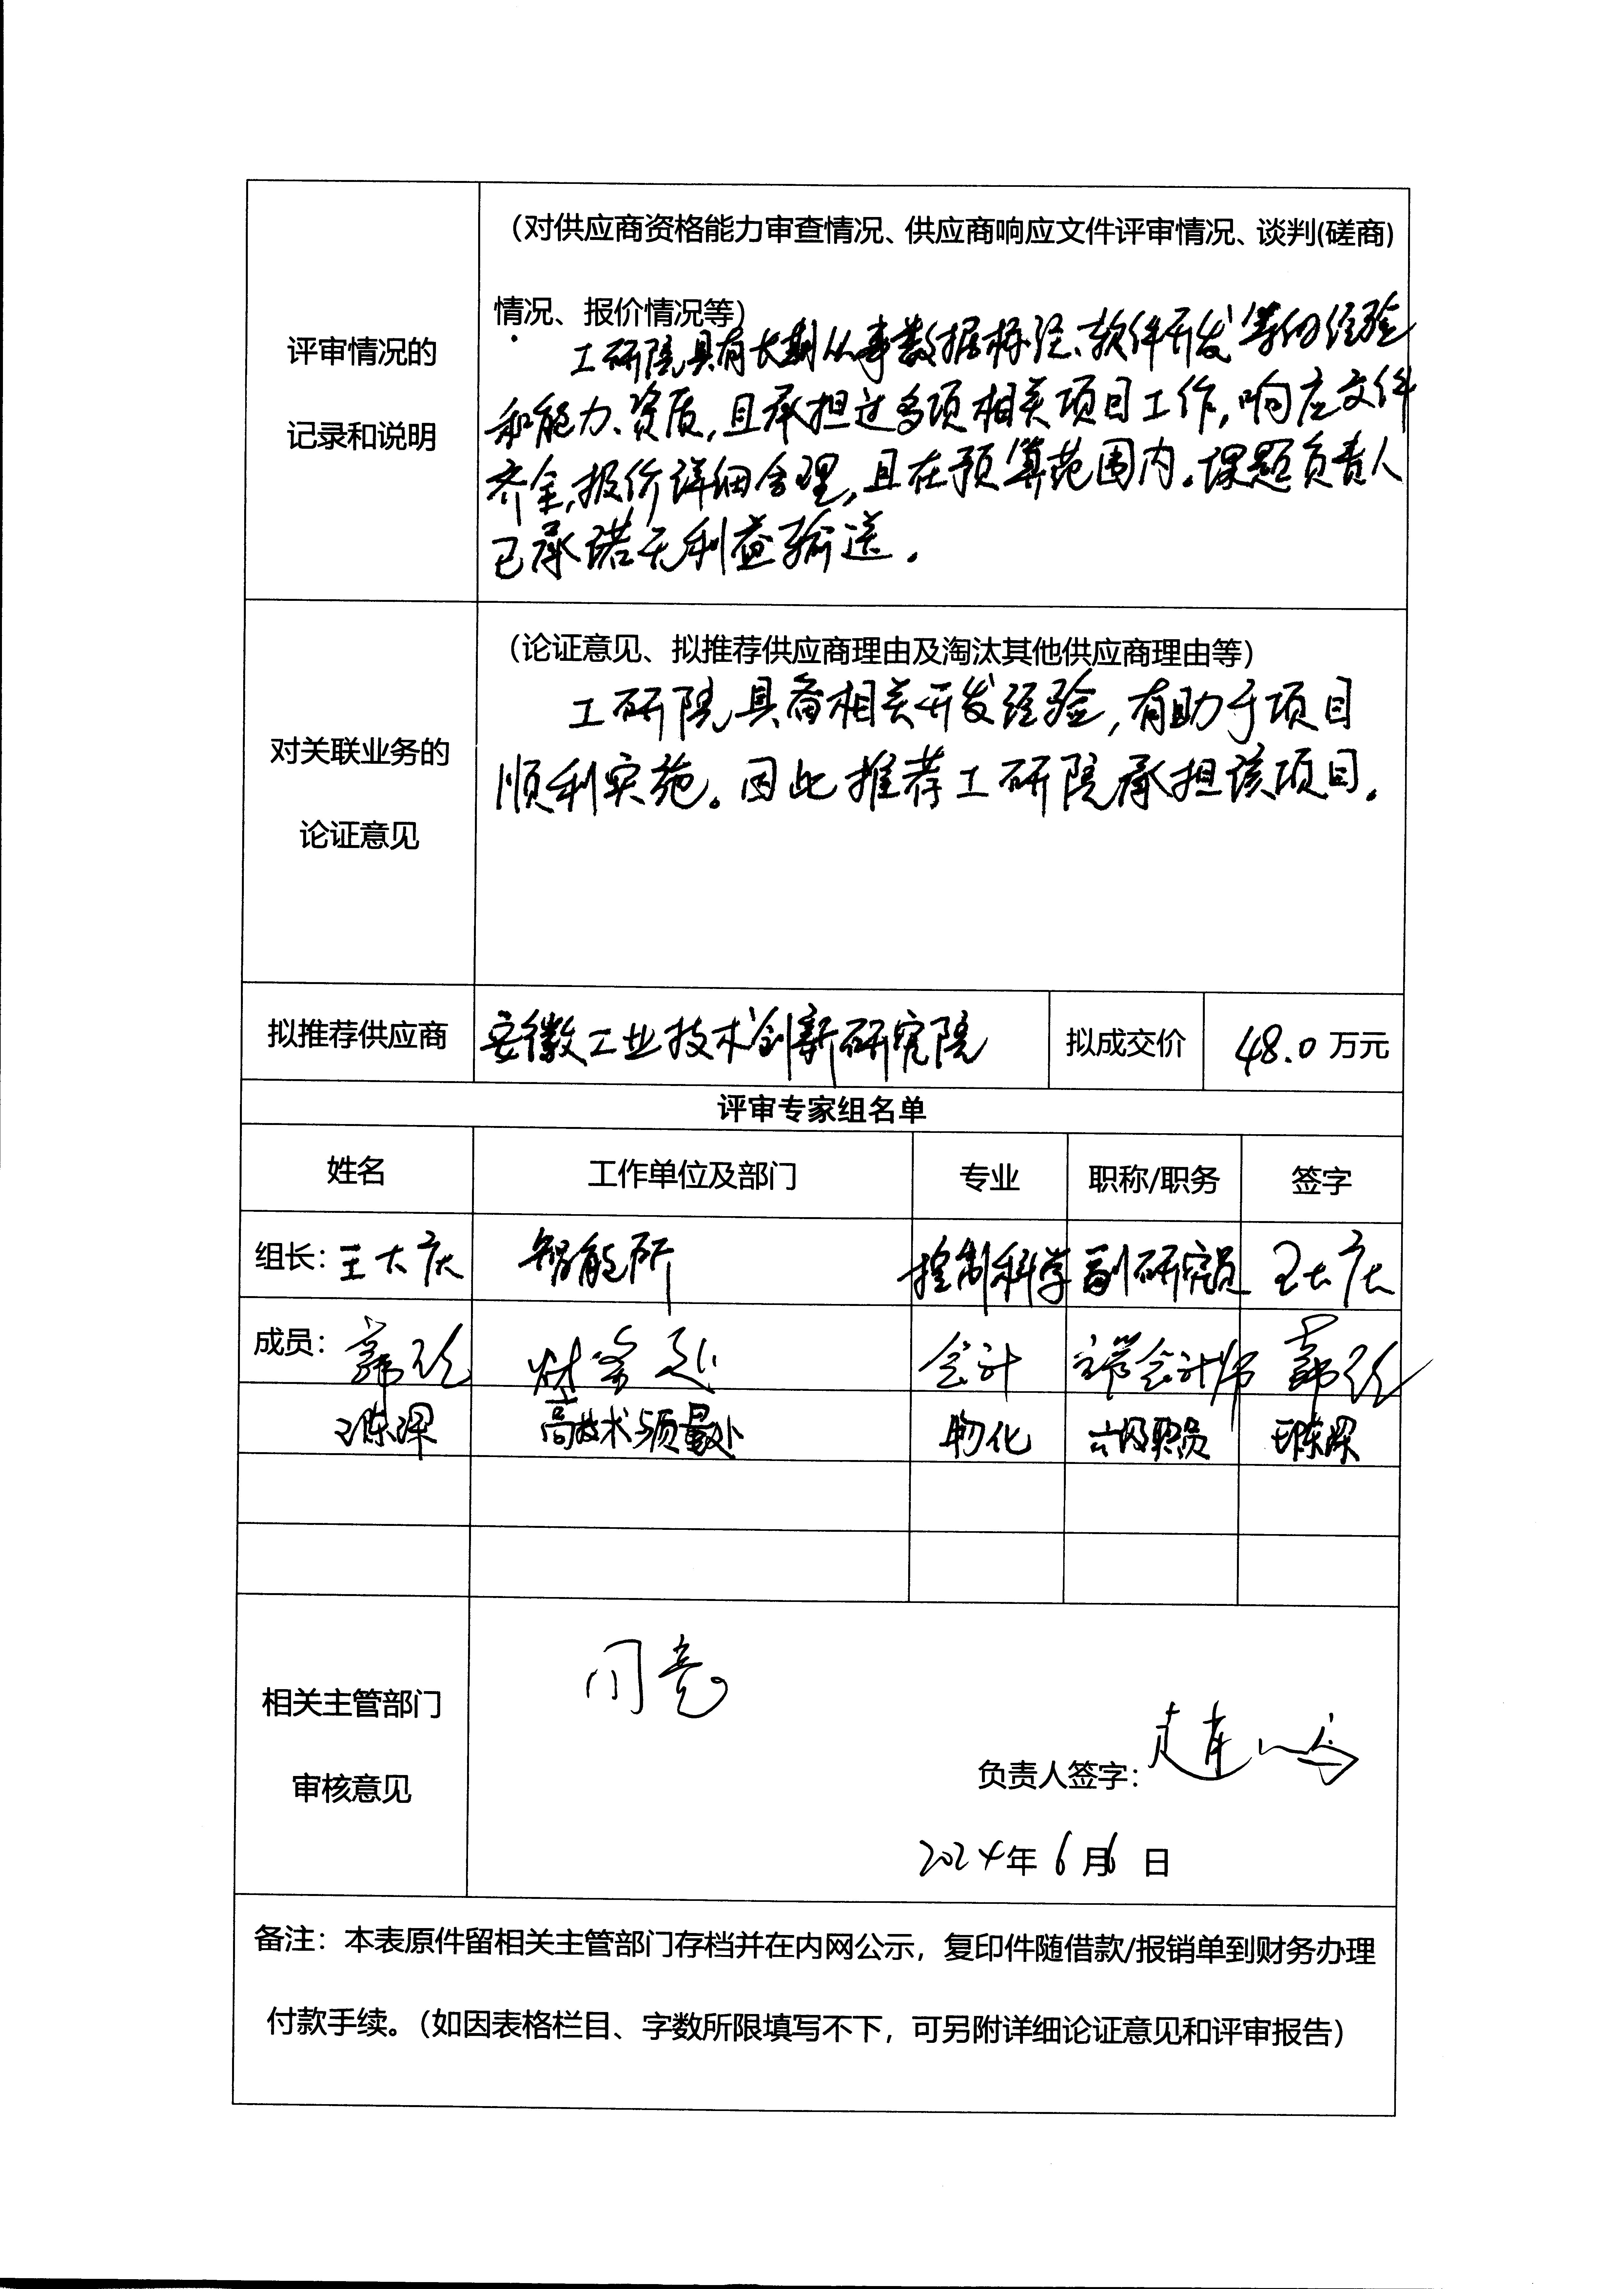 （对供应商资格能力审查情况、供应商响应文件评审情况、谈判(磋商)
情况、报价情况等）
评审情况的
记录和说明
工研院具有长期从事数据标注、软件开发等的经验
和能力、资质，且承担过多项相关项目工作，响应文件
齐全，报价详细合理，且在预算范围内。课题负责人
已承诺无利益输送。
（论证意见、拟推荐供应商理由及淘汰其他供应商理由等）
对关联业务的
论证意见
工研院具备相关开发经验，有助于项目
顺利实施。因此推荐工研院承担该项目。
拟推荐供应商 安徽工业技术创新研究院 拟成交价 48.0 万元
评审专家组名单
姓名 工作单位及部门 专业 职称/职务 签字
组长：王大庆 智能所 控制科学 副研究员 王大庆
成员： 财务处 会计 会计师
高技术与质量处 物化 六级职员
同意
相关主管部门
审核意见
负责人签字：
2024年6月6日
备注：本表原件留相关主管部门存档并在内网公示，复印件随借款/报销单到财务办理
付款手续。（如因表格栏目、字数所限填写不下，可另附详细论证意见和评审报告）